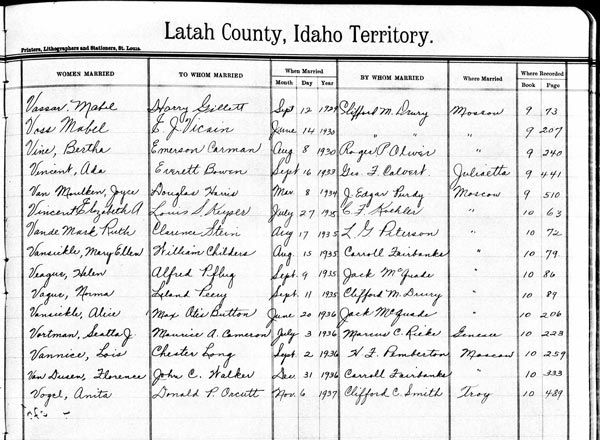 Latah County, Idaho Territory.
Printers, Lithographers and Stationers, St. Louis.
WOMEN MARRIED TO WHOM MARRIED When Married BY WHOM MARRIED Where Married Where Recorded
Month Day Year Book Page
Vassar, Mabel Harry Gillett Sept 12 1929 Clifford M. Drury Moscow 9 73
Voss Mabel E. J. Vicain June 14 1930 " " " 9 207
Vine, Bertha Emerson Carman Aug 8 1930 Roger P. Oliver " 9 240
Vincent, Ada Everett Bowen Sept 16 1933 Geo. F. Calvert Juliaetta 9 441
Van Moulken, Joyce Douglas Haris Mar 8 1934 J. Edgar Purdy Moscow 9 510
Vincent Elizabeth A. Louis S. Keyser July 27 1935 C. F. Koehler " 10 63
Vande Mark Ruth Clarence Stein Aug 17 1935 L. G. Peterson " 10 72
Vansickle, Mary Ellen William Childers Aug. 15 1935 Carroll Fairbanks " 10 79
Veague, Helen Alfred Pflug Sept. 9 1935 Jack McQuade " 10 86
Vague, Norma Leland Sept. 11 1935 Clifford M. Drury " 10 89
Vansickle, Alice Max Otis Button June 20 1936 Jack McQuade " 10 206
Vortman, Seatta J. Maurice A. Cameron July 3 1936 Marcus C. Rieke Genesee 10 223
Vannice, Lois Chester Long Sept 2 1936 H. F. Pemberton Moscow 10 259
Van Dusen, Florence John C. Walker Dec 31 1936 Carroll Fairbanks " 10 333
Vogel, Anita Donald P. Orcutt Nov. 6 1937 Clifford C. Smith Troy 10 489